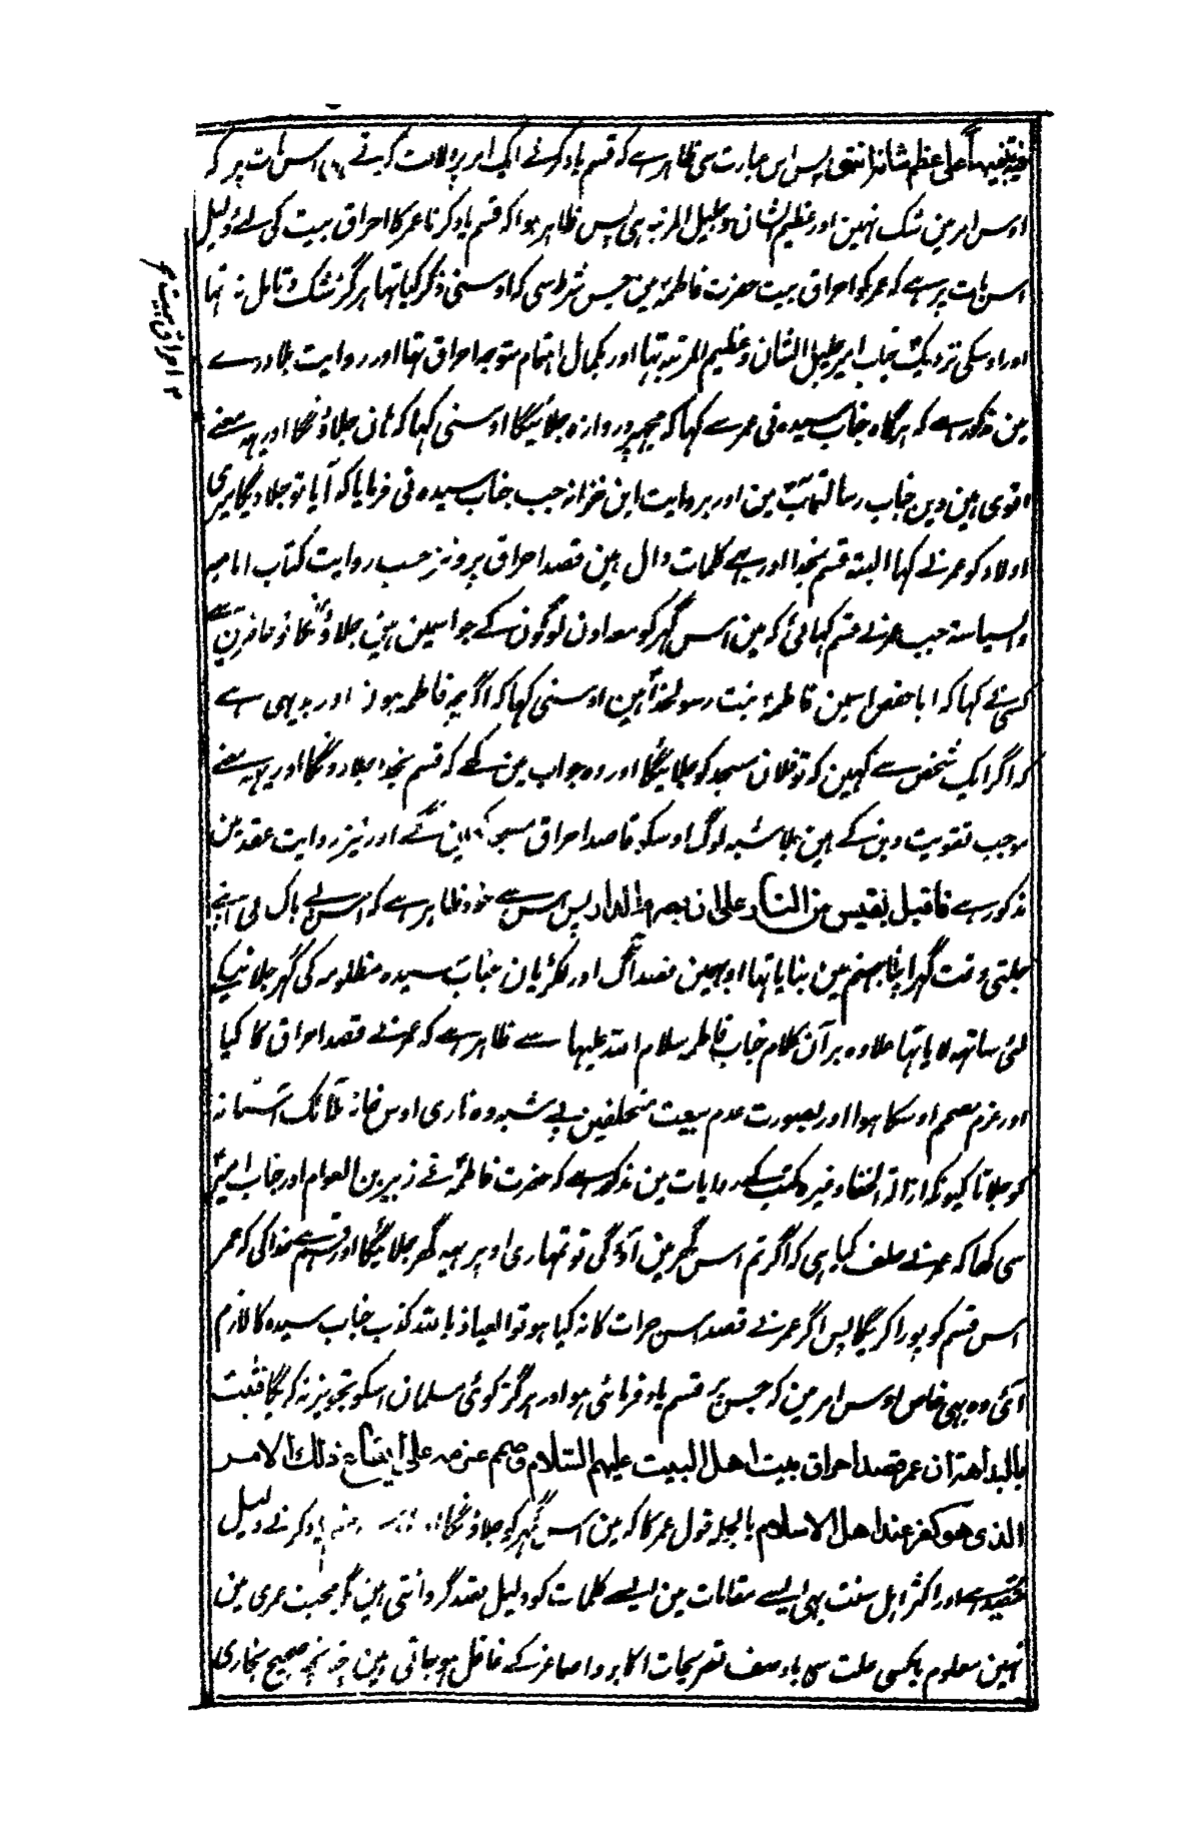 علی عظم شانہ انتہی پس اس عبارت سی ظاہر ہے کہ قسم یاد کرنے ایک امر پر دلالت کرتے ہی اس بات پر کہ
اوس امر مین شک نہین اور عظیم الشان و جلیل المرتبہ ہی پس ظاہر ہوا کہ قسم یاد کرنا عمر کا احراق بیت کی لئے دلیل
اس بات پر ہے کہ عمر کو احراق بیت حضرت فاطمہؑ مین جس شرط سی کہ اوسنی ذکر کیا تہا ہرگز شک و تامل نہ تہا
اور اوسکی نزدیک یہ امر جلیل الشان و عظیم المرتبہ تہا اور بکمال اہتمام متوجہ احراق تہا اور روایت بلاذرے
مین مذکور ہے کہ ہرگاہ جناب سیدہ نی عمر سے کہا کہ مجہپر دروازہ جلائیگا اوسنی کہا کہ ہان جلاؤنگا اور یہہ معنے
اقوی ہین دین جناب رسالتمآبؐ مین اور بروایت ابن خزانہ جب جناب سیدہ نی فرمایا کہ آیا تو جلا دیگا میری
اولاد کو عمر نے کہا البتہ قسم بخدا اور یہے کلمات دال ہین قصد احراق پر و نیز حسب روایت کتاب امامہ
والسیاسۃ جب عمر نے قسم کہائی کہ مین اس گہر کو معہ اون لوگون کے جو اسمین ہین جلاؤنگا تو حاضرین سے
کسی نے کہا کہ ابا حفص اسمین فاطمہؑ بنت رسولخداؐ ہین اوسنی کہا کہ اگرچہ فاطمہ ہون اور بدیہی ہے
کہ اگر ایک شخص سے کہین کہ تو فلان مسجد کو جلائیگا اور وہ جواب مین کہے کہ قسم بخدا جلا دونگا اور یہہ معنے
موجب تقویت دین کے ہین بلا شبہ لوگ اوسکو قاصد احراق مسجد کہین گے اور نیز روایت عقد مین
مذکور ہے فاقبل بقبس من النار علی ان یضرم الدار پس اس سے خود ظاہر ہے کہ اس بے باک نی اپنے
جلتی وقت گہر اپنا جہنم مین بنایا تہا اور ہمین قصد آگ اور لکڑیان جناب سیدہ مظلومہ کی گہر جلانیکے
لئی ساتہہ لایا تہا علاوہ بر آن کلام جناب فاطمہ سلام اللہ علیہا سے ظاہر ہے کہ عمر نے قصد احراق کا کیا
اور عزم مصمم اوسکا ہوا اور بصورت عدم بیعت متخلفین بے شبہ وہ ناری اوس خانہ ملائک آستانہ
کو جلاتا کیونکہ ازالۃ الخفا وغیرہ کتب کے روایات مین مذکور ہے کہ حضرت فاطمہؑ نے زبیر بن العوام اور جناب امیرؑ
سی کہا کہ عمر نے حلف کیا ہی کہ اگر تم اس گہر مین آؤ گی تو تمہاری اوپر یہہ گہر جلائیگا اور قسم ہے خدا کی کہ عمر
اس قسم کو پورا کریگا پس اگر عمر نے قصد اس حرات کا نہ کیا ہو تو العیاذ باللہ کذب جناب سیدہ کا لازم
آئی وہ بہی خاص اوس امر مین کہ جس پر قسم یاد فرمائی ہو اور ہرگز کوئی مسلمان اسکو تجویز نہ کریگا فثبت
بالبداهة ان عمر قصد احراق بیت اهل البیت علیهم السلام وصمم عزمه علی ایقاع ذلك الامر
الذی هو كفر عند اهل الاسلام بالجملہ قول عمر کا کہ مین اس گہر کو جلاؤنگا اور قسم یاد کرنے دلیل
قصد ہے اور اکثر اہل سنت بہی ایسے مقامات مین ایسے کلمات کو دلیل قصد گردانتی ہین گو محبت عمری مین
نہین معلوم کسی علت سی باوصف تصریحات اکابر و اصاغر کے غافل ہو جاتی ہین چنانچہ صحیح بخاری
۱۲ احراق بیت